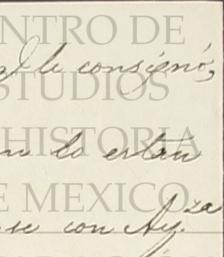 NTRO DE
le consignó,
STUDIOS
HISTORIA
lo están
E MEXICO
se con Ay.za